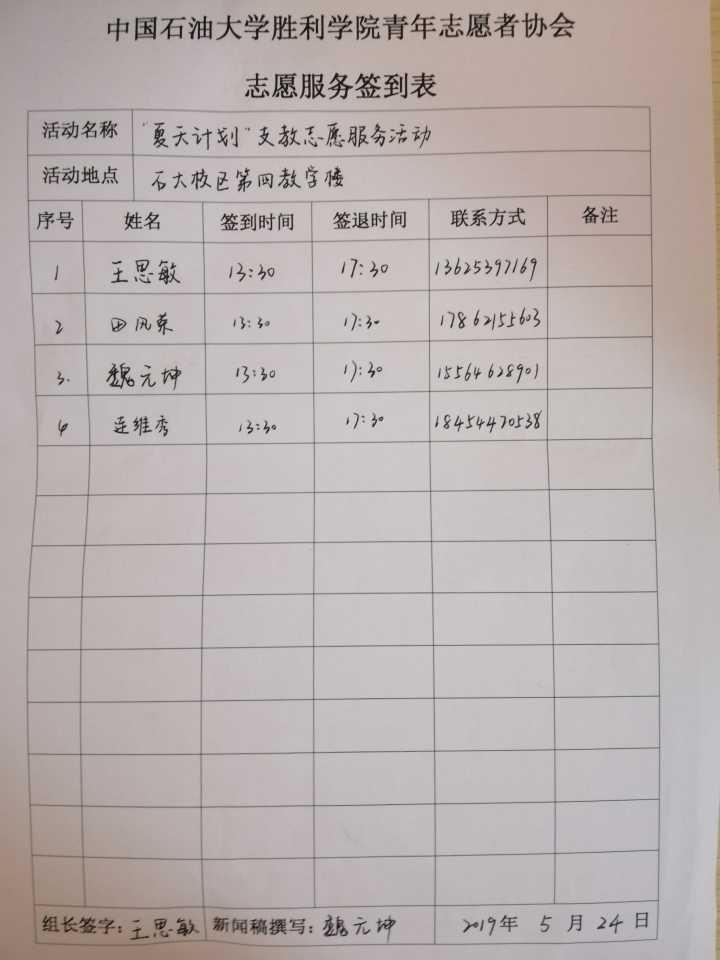 中国石油大学胜利学院青年志愿者协会
志愿服务签到表
活动名称 “夏天计划”支教志愿服务活动
活动地点 石大校区第四教学楼
序号 姓名 签到时间 签退时间 联系方式 备注
1 王思敏 13:30 17:30 13625397169
2 田风荣 13:30 17:30 17862155603
3. 魏元坤 13:30 17:30 15564628901
4 连维秀 13:30 17:30 18454470538
组长签字:王思敏 新闻稿撰写:魏元坤 2019年 5 月 24 日